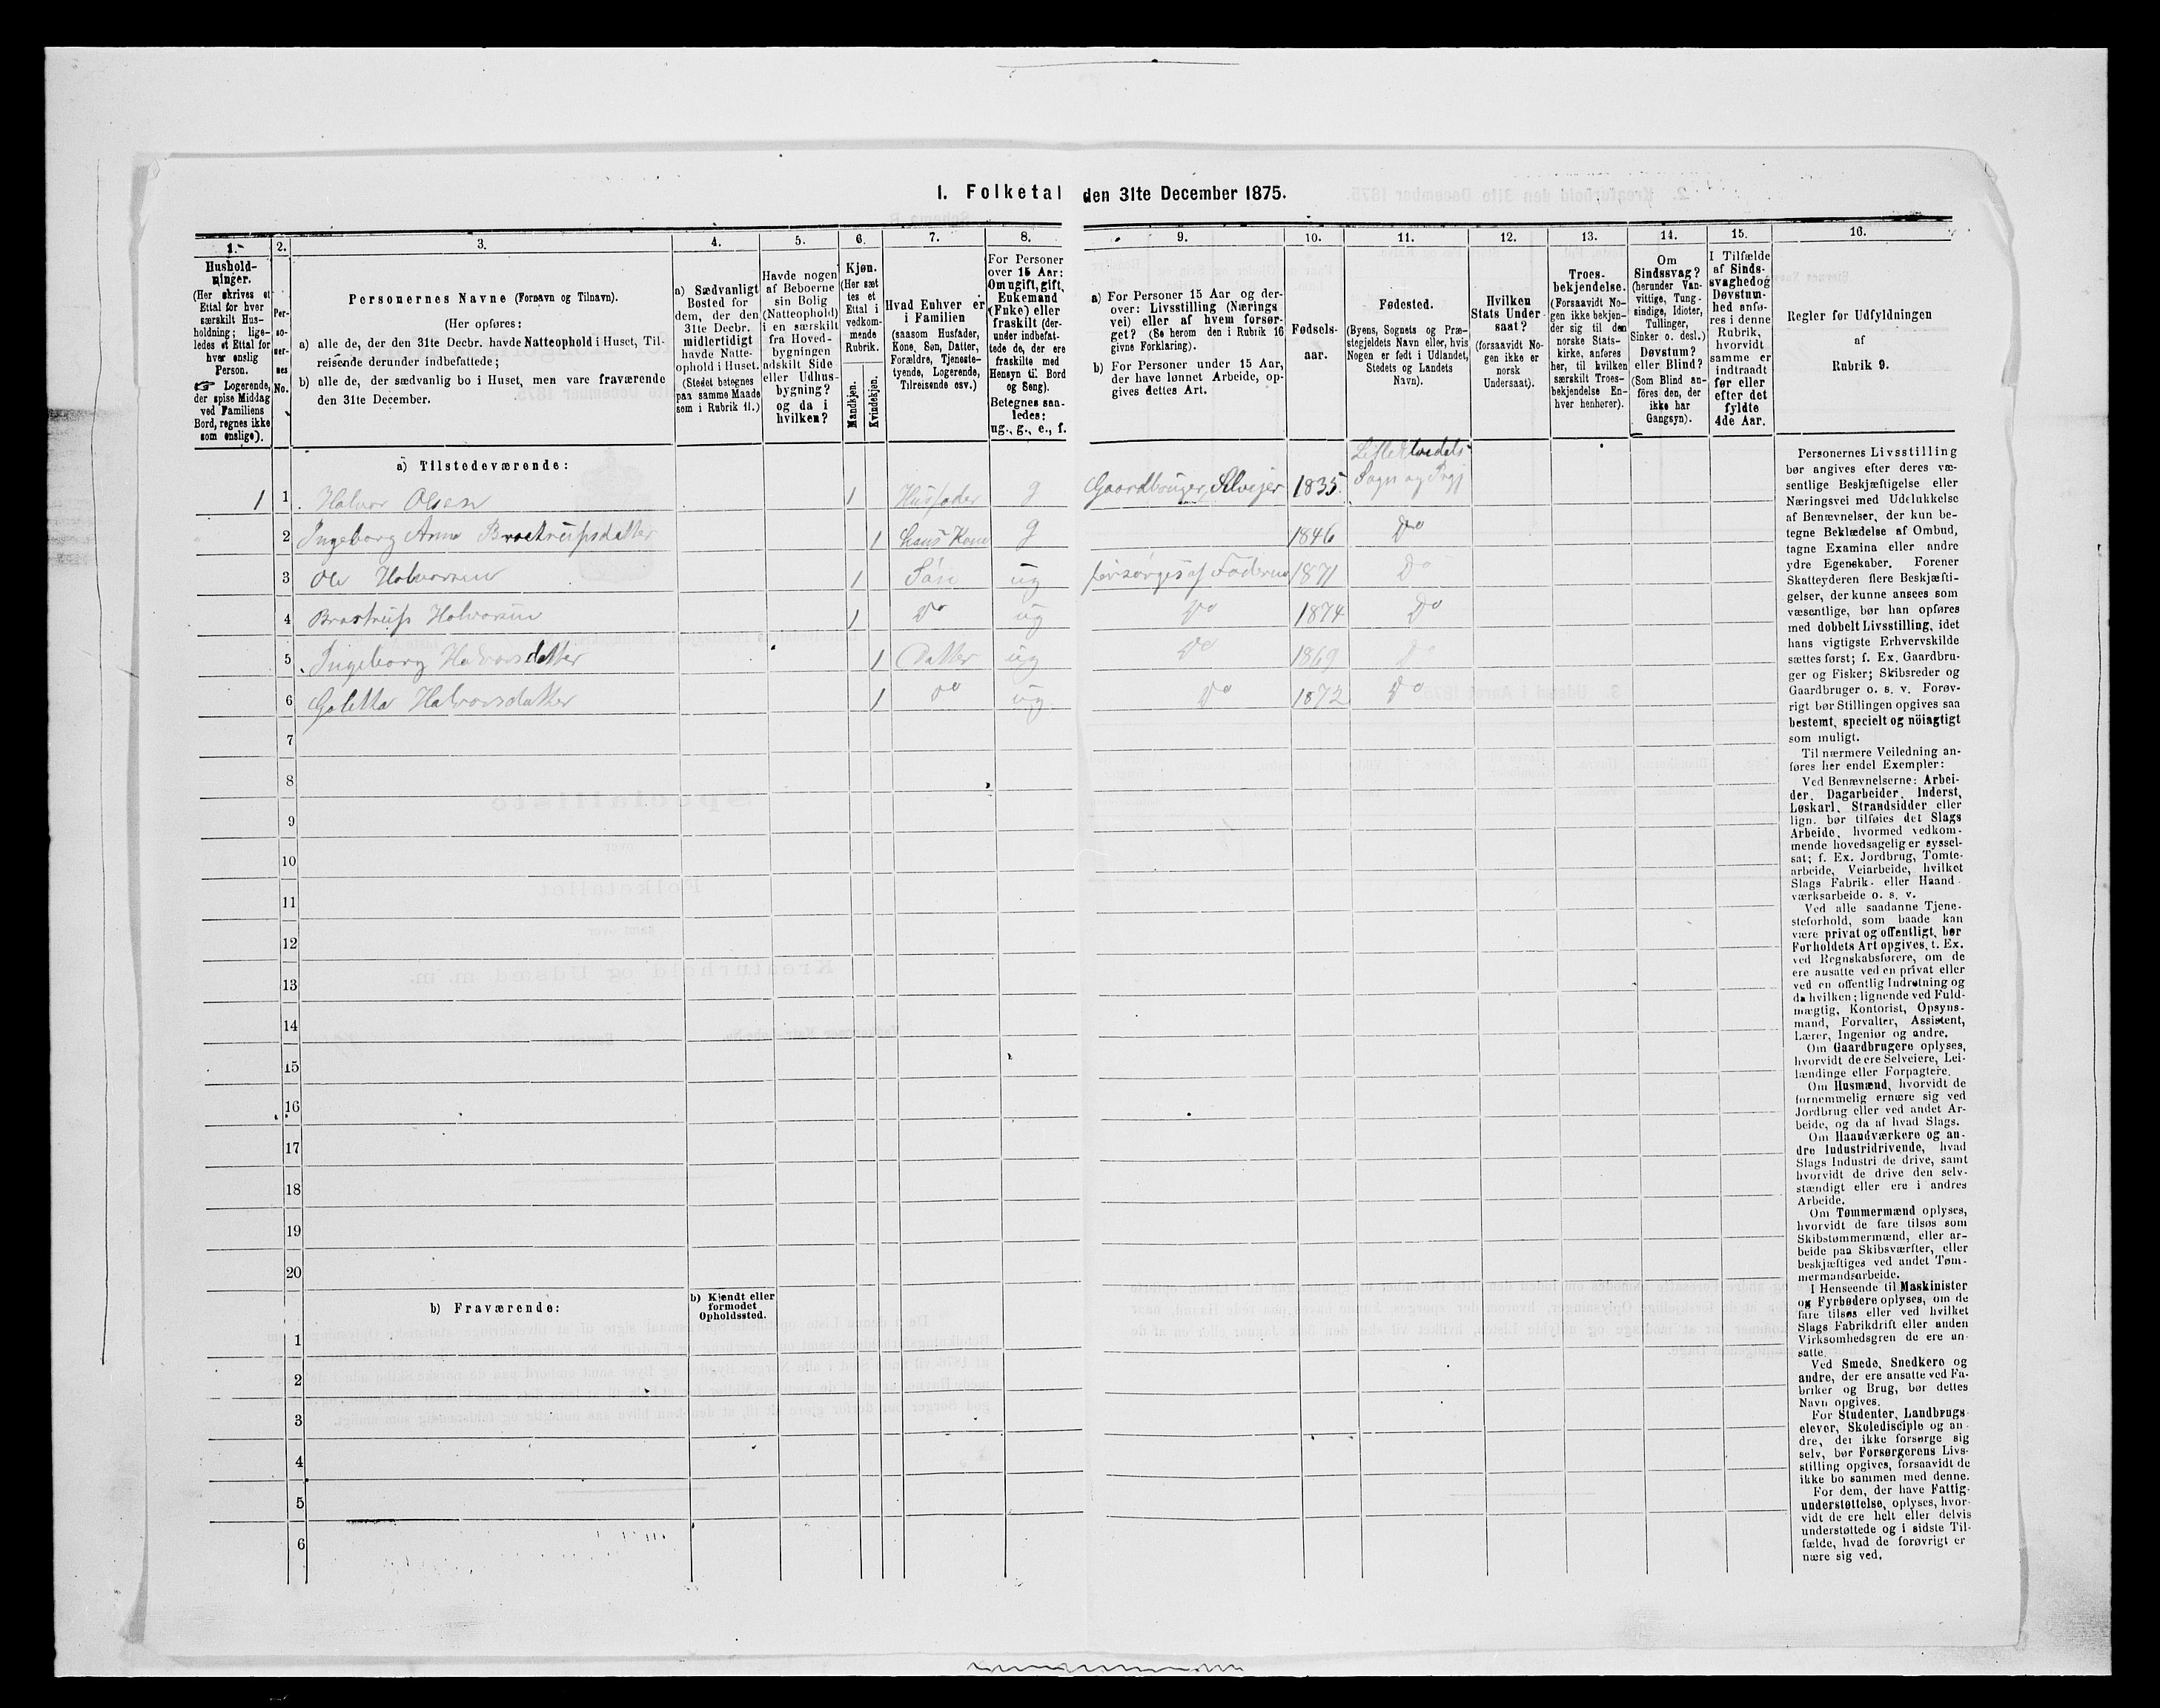 I. Folketal den 31te December 1875.
1. 2. 3. 4. 5. 6. 7. 8. 9. 10. 11. 12. 13. 14. 15. 16.
Hushold-
ninger.
(Her skrives et
Ettal for hver
særskilt Hus-
holdning; lige-
ledes et Ettal for
hver enslig
Person.
☞ Logerende,
der spise Middag
ved Familiens
Bord, regnes ikke
som enslige).
Per-
so-
ner-
nes
No.
Personernes Navne (Fornavn og Tilnavn).
(Her opføres:
a) alle de, der den 31te Decbr. havde Natteophold i Huset, Til-
reisende derunder indbefattede;
b) alle de, der sædvanlig bo i Huset, men vare fraværende
den 31te December.
a) Sædvanligt
Bosted for
dem, der den
31te Decbr.
midlertidigt
havde Natte-
ophold i Huset.
(Stedet betegnes
paa samme Maade
som i Rubrik 11.)
Havde nogen
af Beboerne
sin Bolig
(Natteophold)
i en særskilt
fra Hoved-
bygningen
adskilt Side
eller Udhus-
bygning?
og da i
hvilken?
Kjøn.
(Her sæt
tes et
Ettal i
vedkom-
mende
Rubrik.
Mandkjøn.
Kvindekjøn.
Hvad Enhver er
i Familien
(saasom Husfader,
Kone, Søn, Datter,
Forældre, Tjeneste-
tyende, Logerende,
Tilreisende osv.)
For Personer
over 15 Aar:
Om ugift, gift,
Enkemand
(Enke) eller
fraskilt (der-
under indbefat-
tede de, der ere
fraskilte med
Hensyn til Bord
og Seng).
Betegnes saa-
ledes:
ug., g., e., f.
a) For Personer 15 Aar og der-
over: Livsstilling (Nærings
vei) eller af hvem forsør-
get? (Se herom den i Rubrik 16
givne Forklaring).
b) For Personer under 15 Aar,
der have lønnet Arbeide, op-
gives dettes Art.
Fødsels-
aar.
Fødested.
(Byens, Sognets og Præ-
stegjeldets Navn eller, hvis
Nogen er født i Udlandet,
Stedets og Landets
Navn).
Hvilken
Stats Under-
saat?
(forsaavidt No-
gen ikke er
norsk
Undersaat).
Troes-
bekjendelse.
(Forsaavidt No-
gen ikke bekjen-
der sig til den
norske Stats-
kirke, anføres
her, til hvilken
særskilt Troes-
bekjendelse En-
hver henhører).
Om
Sindssvag?
(herunder Van-
vittige, Tung-
sindige, Idioter,
Tullinger,
Sinker o. desl.)
Døvstum?
eller Blind?
(Som Blind an-
føres den, der
ikke har
Gangsyn).
I Tilfælde
af Sinds-
svaghed og
Døvstum-
hed anfø-
res i denne
Rubrik,
hvorvidt
samme er
indtraadt
før eller
efter det
fyldte
4de Aar.
Regler for Udfyldningen
af
Rubrik 9.
a) Tilstedeværende:
1 1 Halvor Olsen 1 Husfader g Gaardbruger, Selveier 1835 Sogn og Prgj
2 Ingeborg Anne Brostrupsdatter 1 hans Kone g 1846 Do
3 Ole Halvorsen 1 Søn ug forsørges af Faderen 1871 Do
4 Brostrup Halvorsen 1 Do ug Do 1874 Do
5 Ingeborg Halvorsdatter 1 Datter ug Do 1869 Do
6 Goletta Halvorsdatter 1 Do ug Do 1872 Do
7
8
9
10
11
12
13
14
15
16
17
18
19
20
b) Fraværende:
b) Kjendt eller
formodet
Opholdssted.
1
2
3
4
5
6
Personernes Livsstilling
bør angives efter deres væ-
sentlige Beskjæftigelse eller
Næringsvei med Udelukkelse
af Benævnelser, der kun be-
tegne Beklædelse af Ombud,
tagne Examina eller andre
ydre Egenskaber. Forener
Skatteyderen flere Beskjæfti-
gelser, der kunne ansees som
væsentlige, bør han opføres
med dobbelt Livsstilling, idet
hans vigtigste Erhvervskilde
sættes først; f. Ex. Gaardbru-
ger og Fisker; Skibsreder og
Gaardbruger o. s. v. Forøv-
rigt bør Stillingen opgives saa
bestemt, specielt og nöiagtigt
som muligt.
Til nærmere Veiledning an-
føres her endel Exempler:
Ved Benævnelserne: Arbei-
der, Dagarbeider, Inderst,
Løskarl, Strandsidder eller
lign. bør tilføies det Slags
Arbeide, hvormed vedkom-
mende hovedsagelig er syssel-
sat; f. Ex. Jordbrug, Tomte-
arbeide, Veiarbeide, hvilket
Slags Fabrik- eller Haand-
værksarbeide o. s. v.
Ved alle saadanne Tjene-
steforhold, som baade kan
være privat og offentligt, bør
Forholdets Art opgives, t. Ex.
ved Regnskabsførere, om de
ere ansatte ved en privat eller
ved en offentlig Indretning og
da hvilken; lignende ved Fuld-
mægtig, Kontorist, Opsyns-
mand, Forvalter, Assistent,
Lærer, Ingeniør og andre.
Om Gaardbrugere oplyses,
hvorvidt de ere Selveiere, Lei-
lændinge eller Forpagtere.
Om Husmænd, hvorvidt de
fornemmelig ernære sig ved
Jordbrug eller ved andet Ar-
beide, og da af hvad Slags.
Om Haandværkere og an-
dre Industridrivende, hvad
Slags Industri de drive, samt
hvorvidt de drive den selv-
stændigt eller ere i andres
Arbeide.
Om Tømmermænd oplyses,
hvorvidt de fare tilsøs som
Skibstømmermænd, eller ar-
beide paa Skibsværfter, eller
beskjæftiges ved andet Tøm-
mermandsarbeide.
I Henseende til Maskinister
og Fyrbødere oplyses, om de
fare tilsøs eller ved hvilket
Slags Fabrikdrift eller anden
Virksomhedsgren de ere an-
satte.
Ved Smede, Snedkere og
andre, der ere ansatte ved Fa-
briker og Brug, bør dettes
Navn opgives.
For Studenter, Landbrugs-
elever, Skoledisciple og an-
dre, der ikke forsørge sig
selv, bør Forsørgerens Livs-
stilling opgives, forsaavidt de
ikke bo sammen med denne.
For dem, der have Fattig-
understøttelse, oplyses, hvor-
vidt de ere helt eller delvis
understøttede og i sidste Til-
fælde, hvad de forøvrigt er
nære sig ved.